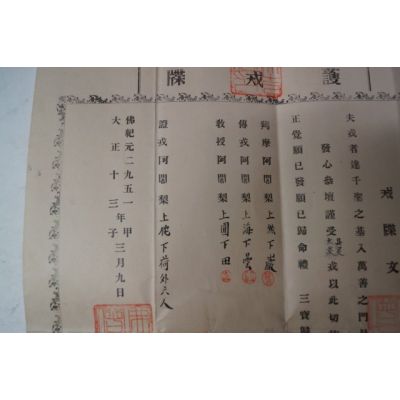 護戒牒
戒牒文
夫戒者達千聖之基入萬善之門
發心恭壇謹受具足大戒戒以此切
正覺願已發願已歸命禮 三寶
羯磨阿闍梨上然下巖
傳戒阿闍梨上海下曇
教授阿闍梨上圓下田
證戒阿闍梨上 下荷外六人
佛紀元二九五一年甲
大正十三年子三月九日